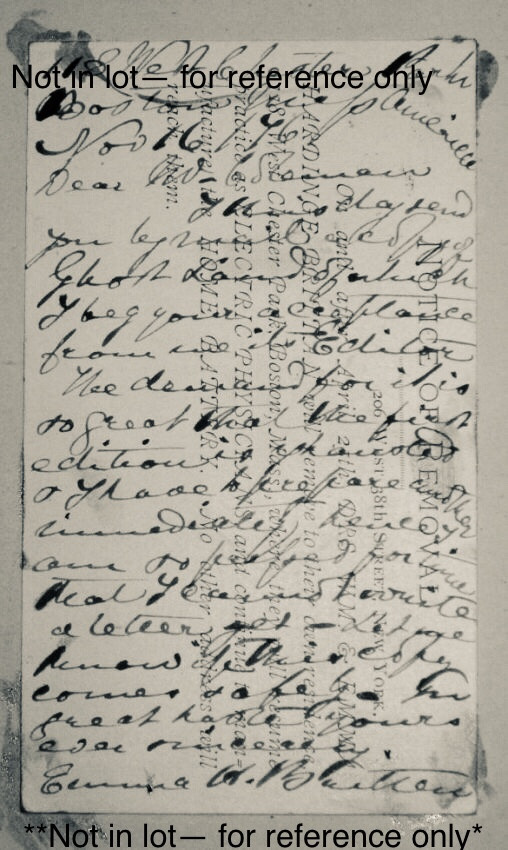 Not in lot— for reference only
118 West Chester Park
Boston Mass America
Nov 16 176
Dear Mr
I this day send
you by mail a copy of
Ghost Land of which
I beg your acceptance
from me its Editor
The demand for it is
so great that the first
edition is exhausted
& I have to prepare another
immediately hence I
am so for time
that I cannot write
a letter yet – Let me
know if this copy
comes safely. In
great haste yours
ever sincerely
Emma H. Britten
NOTICE OF REMOVAL
206 WEST 38th STREET, NEW YORK.
On and after April 24th, DRS. WM. & EMMA
HARDINGE BRITTEN will remove to their own residence,
118 West Chester Park, Boston, Mass., where they will continue
practice as ELECTRIC PHYSICIANS, and continue to man-
ufacture the HOME BATTERY. No other address will
reach them.
**Not in lot— for reference only*